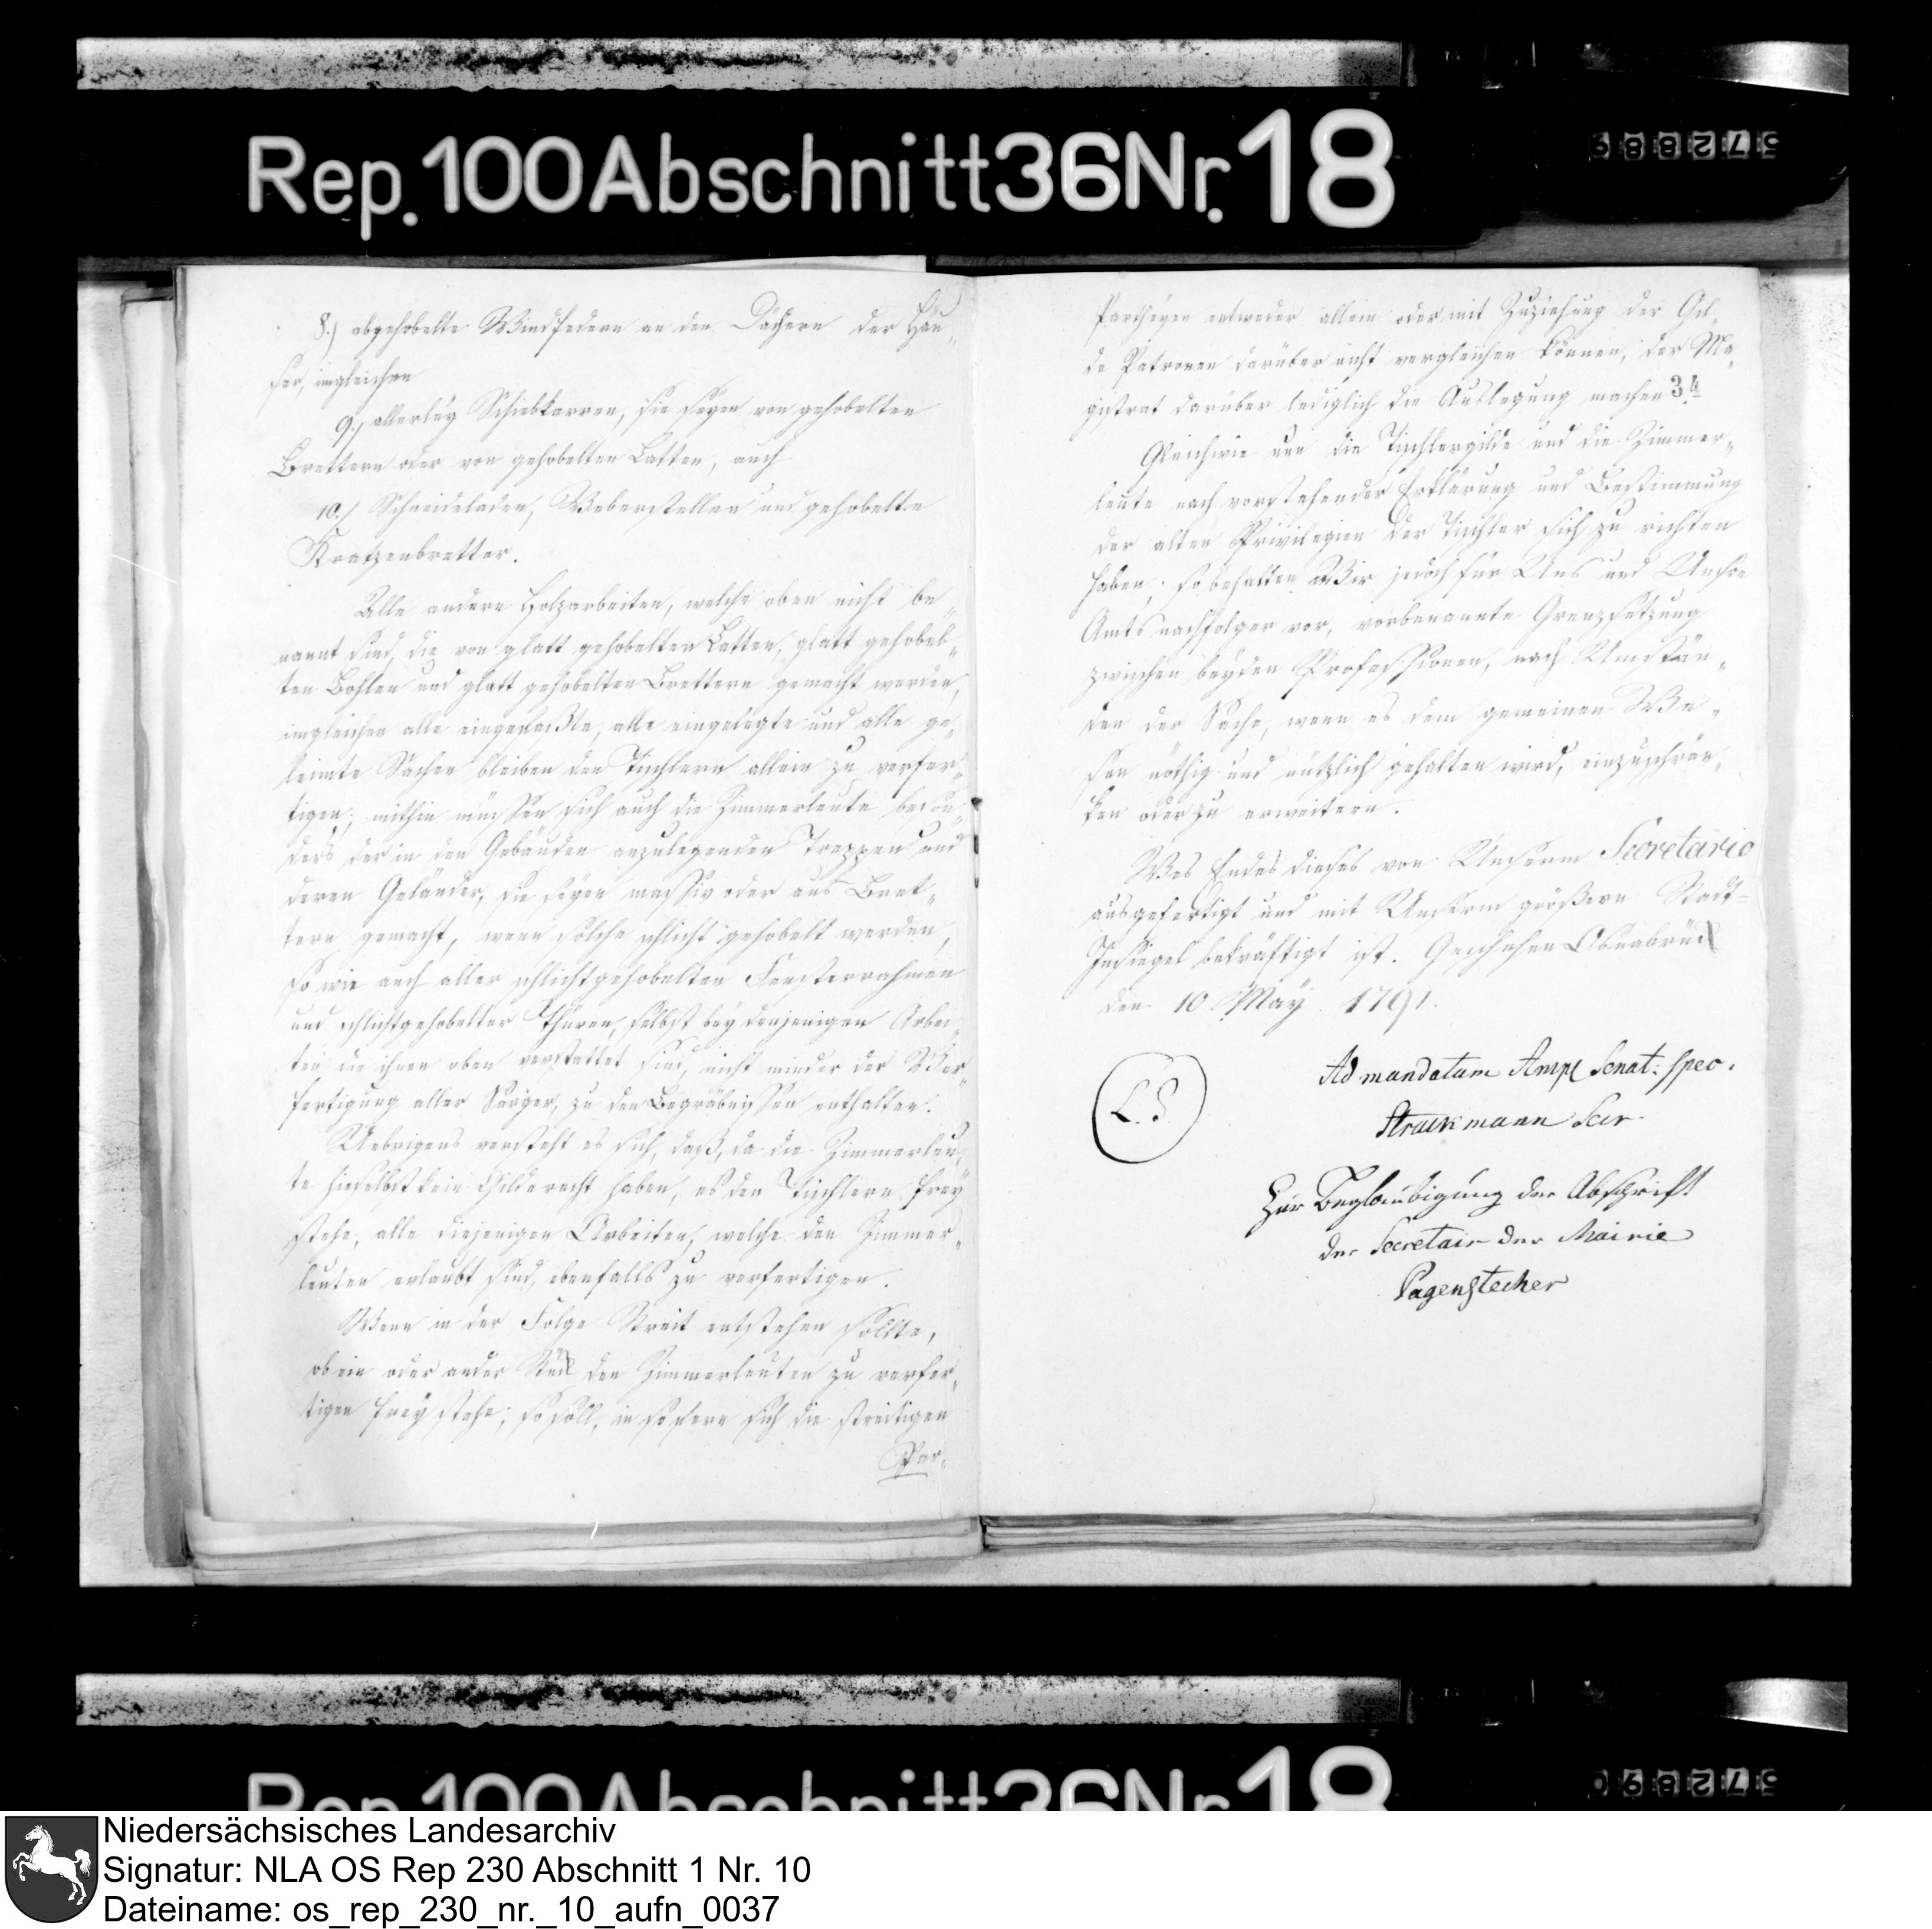 Rep. 100 Abschnitt 36 Nr. 18
572889
8.) abgehobelte Windfedern an den Dächern der Häu-
ser, imgleichen
9.) allerley Schiebkarren, sie seyen von gehobelten
Brettern oder von gehobelten Latten, auch
10.) Schneideladen, Weberstellen und gehobelte
Kratzenbretter.
Alle andere Holzarbeiten, welche oben nicht be-
nannt sind, die von glatt gehobelten Latten, glatt gehobel-
ten Bohlen und glatt gehobelten Brettern gemacht werden,
imgleichen alle eingefaßte, alle eingelegte und alle ge-
leimte Sachen bleiben den Tischlern allein zu verfer-
tigen; mithin müssen sich auch die Zimmerleute beson-
ders der in den Gebäuden anzulegenden Treppen und
deren Geländer, sie seyen massiv oder aus Bret-
tern gemacht, wenn solche schlicht gehobelt werden,
so wie auch aller schlichtgehobelten Fensterrahmen
und schlichtgehobelter Thüren, selbst bey denjenigen Arbei-
ten die ihnen oben verstattet sind, nicht minder der Ver-
fertigung aller Särger, zu den Begräbnissen enthalten.
Uebrigens versteht es sich, daß, da die Zimmerleu-
te hieselbst kein Gilderecht haben, es den Tischlern frey
stehe, alle diejenigen Arbeiten, welche den Zimmer-
leuten erlaubt sind, ebenfalls zu verfertigen.
Wenn in der Folge Streit entstehen sollte,
ob ein oder ander Stück den Zimmerleuten zu verfer-
tigen frey stehe; so soll, in sofern sich die streitigen
Par-
Partheyen entweder allein oder mit Zuziehung der Gil-
de Patronen darüber nicht vergleichen können, der Ma-
gistrat darüber lediglich die Auslegung machen
34
Gleichwie nun die Tischlergilde und die Zimmer-
leute nach vorstehender Erklärung und Bestimmung
der alten Privilegien der Tischler sich zu richten
haben; so behalten Wir jedoch für Uns und Unsre
Amtsnachfolger vor, vorbenannte Grenzsetzung
zwischen beyden Professionen, nach Umstän-
den der Sache, wenn es dem gemeinen We-
sen nöthig und nützlich gehalten wird, einzuschrän-
ken oder zu erweitern.
Wes Endes dieses von Unserm Secretario
ausgefertigt und mit Unserm größern Stadt-
Insiegel bekräftigt ist. Geschehen Osnabrück
den 10 May. 1791.
L. S.
Ad mandatum Ampl Senat: spec.
Struckmann Secr.
Zur Beglaubigung der Abschrift
der Secretair der Mairie
Pagenstecher
Rep. 100 Abschnitt 36 Nr. 18
572890
Niedersächsisches Landesarchiv
Signatur: NLA OS Rep 230 Abschnitt 1 Nr. 10
Dateiname: os_rep_230_nr._10_aufn_0037